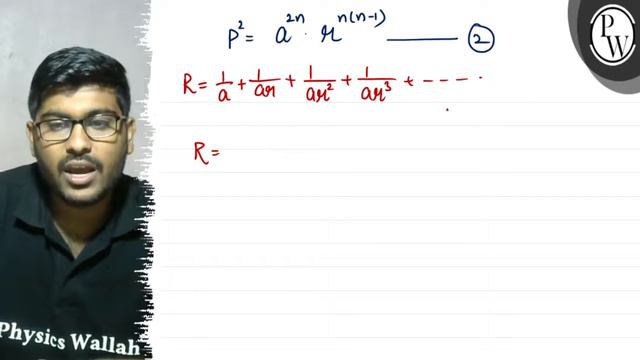 P² = a²ⁿ · r^{n(n-1)} ——— ②
R = 1/a + 1/ar + 1/ar² + 1/ar³ + - - - -
R =
PW
Physics Wallah